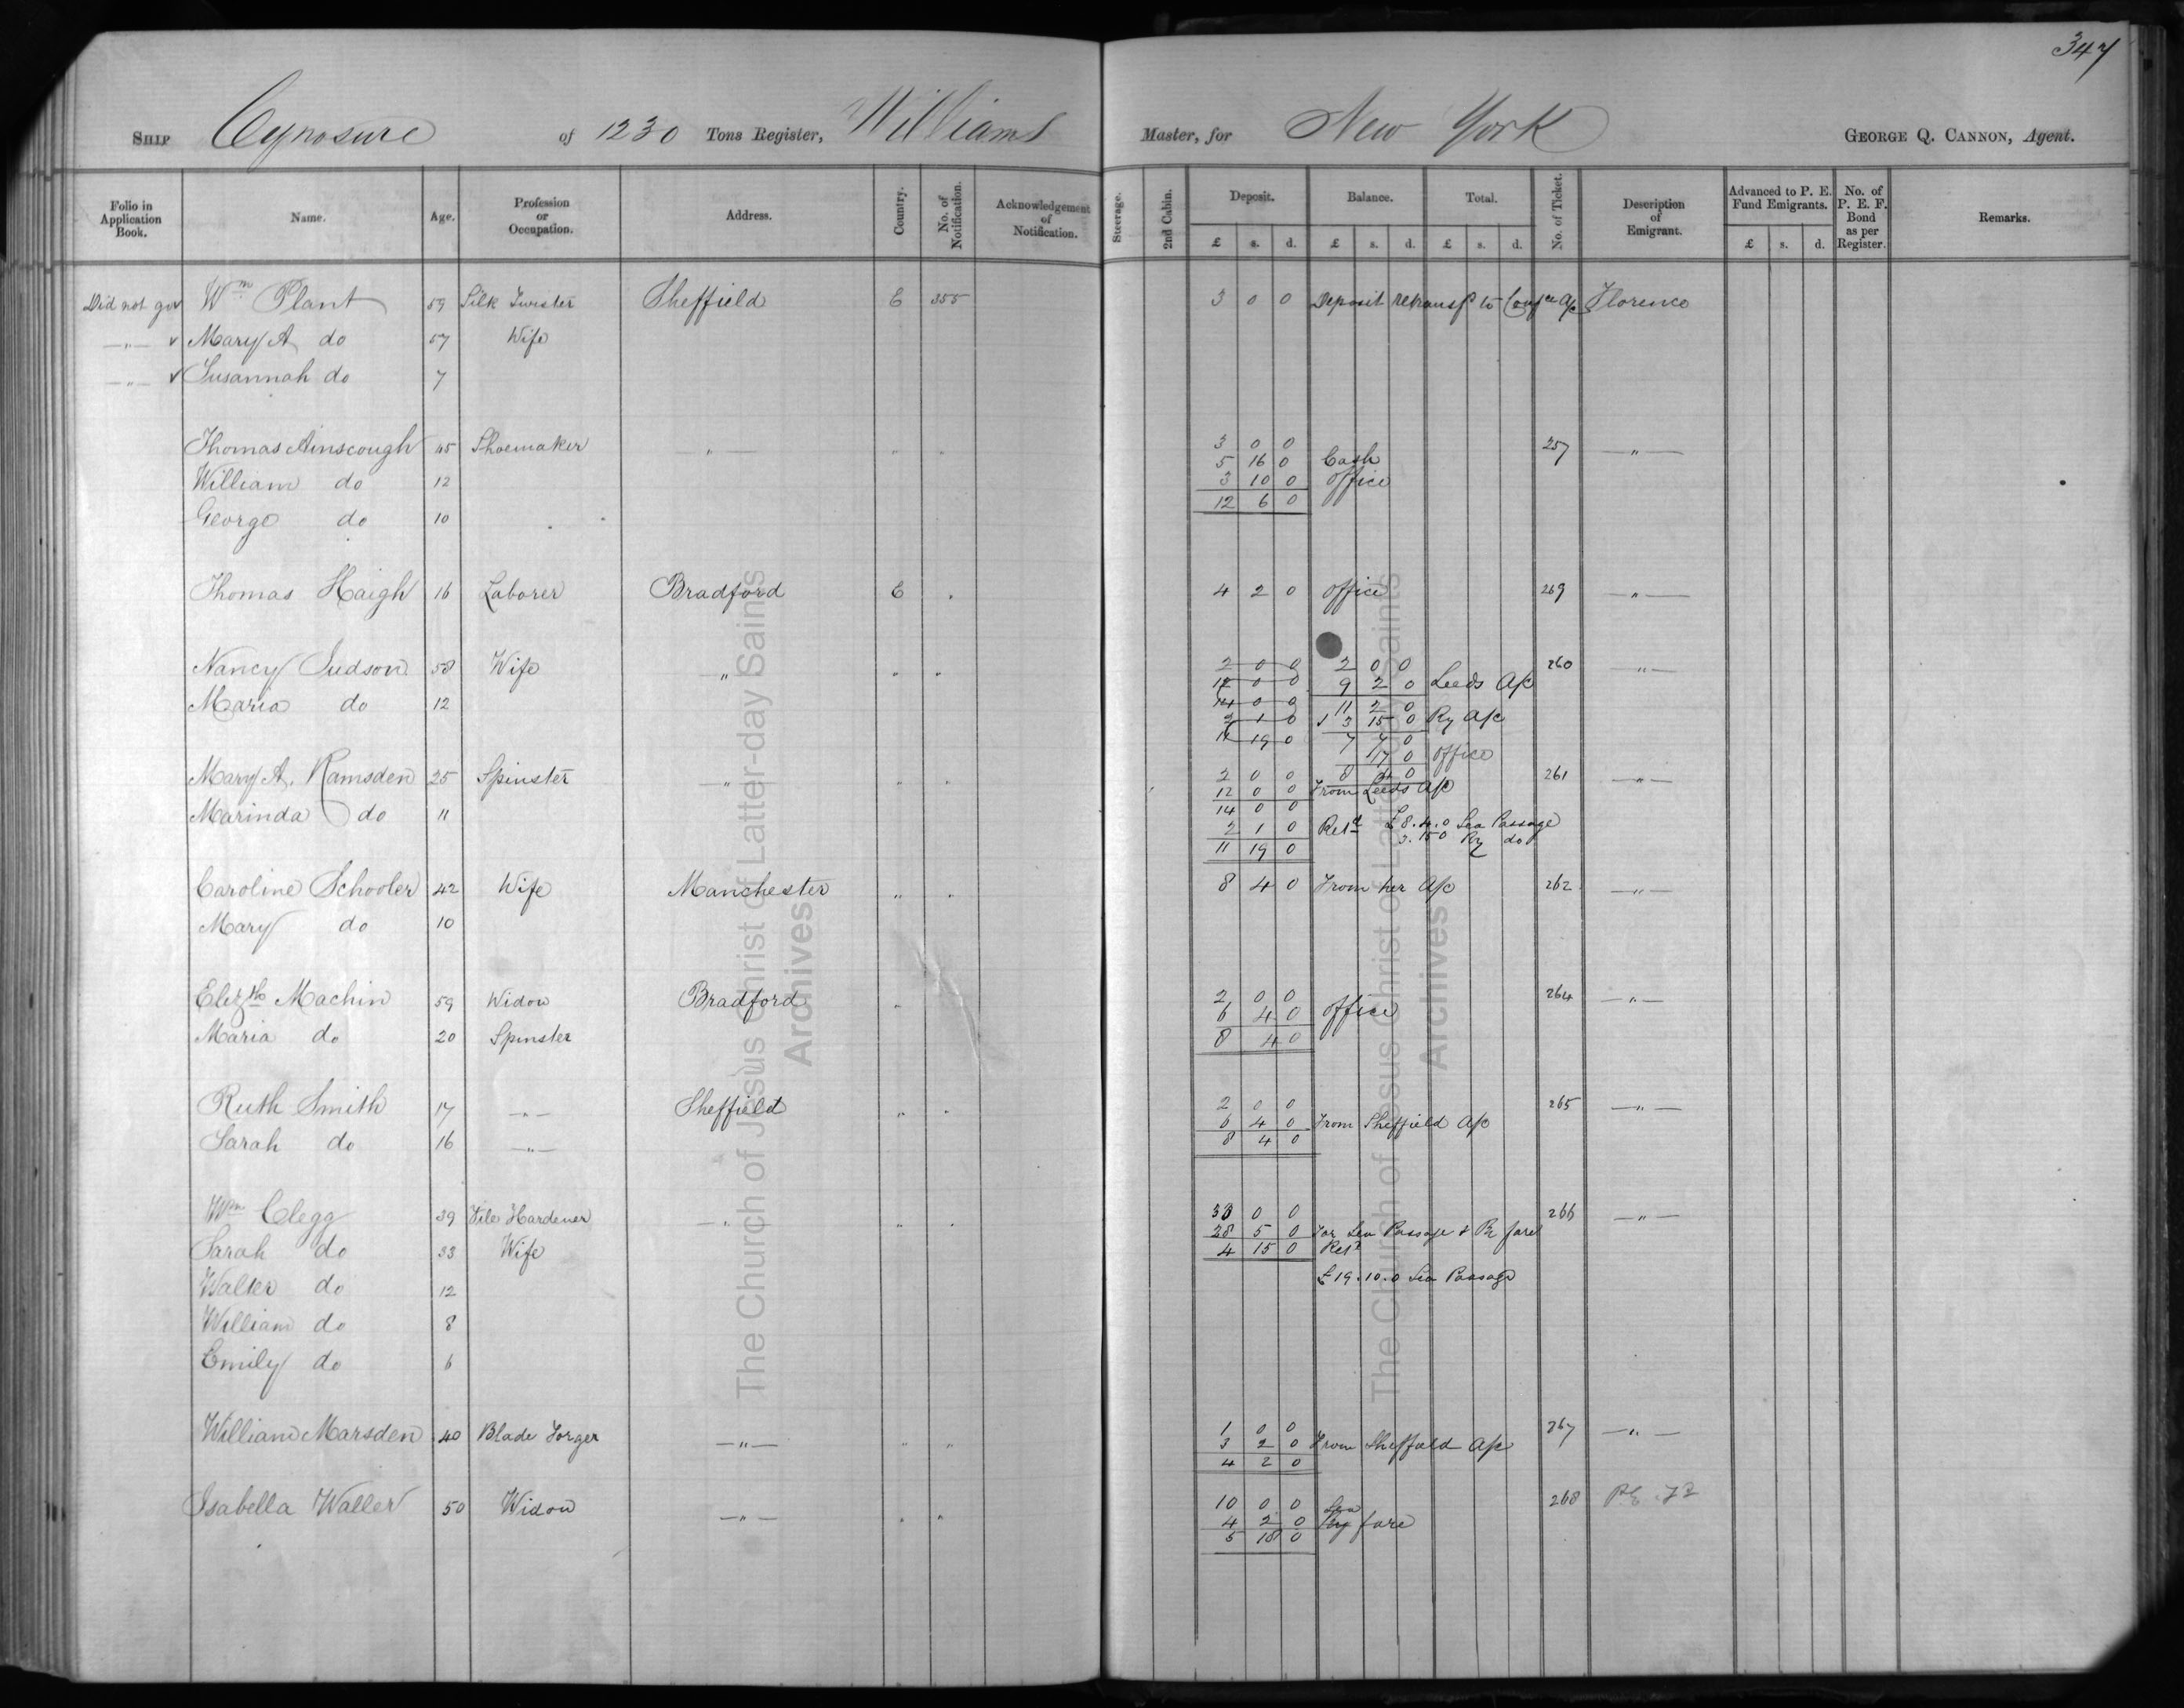 347
SHIP Cynosure of 1230 Tons Register, Williams Master, for New York GEORGE Q. CANNON, Agent.
Folio in Application Book. Name. Age. Profession or Occupation. Address. Country. No. of Notification. Acknowledgement of Notification. Steerage. 2nd Cabin. Deposit. Balance. Total. No. of Ticket. Description of Emigrant. Advanced to P. E. Fund Emigrants. No. of P. E. F. Bond as per Register. Remarks.
£ s. d. £ s. d. £ s. d. £ s. d.
Did not go v Wm Plant 59 Silk Twister Sheffield E 355 3 0 0 Deposit retransf to Confce A/c Florence
—"— v Mary A do 57 Wife
—"— v Susannah do 7
Thomas Ainscough 45 Shoemaker —"— " " 3 0 0 257 —"—
5 16 0 Cash
William do 12 3 10 0 Office
12 6 0
George do 10
Thomas Haigh 16 Laborer Bradford E " 4 2 0 Office 269 —"—
Nancy Judson 58 Wife —"— " " 2 0 0 2 0 0 260 —"—
12 0 0 9 2 0 Leeds A/c
Maria do 12 14 0 0 11 2 0
2 1 0 3 15 0 Ry A/c
11 19 0 7 7 0
17 0 Office
Mary A. Ramsden 25 Spinster —"— " " 2 0 0 8 4 0 261 —"—
12 0 0 From Leeds A/c
Marinda do 11 14 0 0
2 1 0 Retd £8.4.0 Sea Passage
11 19 0 3.15.0 Ry do
Caroline Schooler 42 Wife Manchester " " 8 4 0 From her A/c 262 —"—
Mary do 10
Elizth Machin 59 Widow Bradford " 2 0 0 264 —"—
6 4 0 Office
Maria do 20 Spinster 8 4 0
Ruth Smith 17 —"— Sheffield " " 2 0 0 265 —"—
6 4 0 From Sheffield A/c
Sarah do 16 —"— 8 4 0
Wm Clegg 39 File Hardener —"— " " 33 0 0 266 —"—
28 5 0 For Sea Passage & Ry fare
Sarah do 33 Wife 4 15 0 Retd
£19.10.0 Sea Passage
Walter do 12
William do 8
Emily do 6
William Marsden 40 Blade Forger —"— " " 1 0 0 267 —"—
3 2 0 From Sheffield A/c
4 2 0
Isabella Waller 50 Widow —"— " " 10 0 0 Sea 268
4 2 0 Ry fare
5 18 0
The Church of Jesus Christ of Latter-day Saints
Archives
The Church of Jesus Christ of Latter-day Saints
Archives